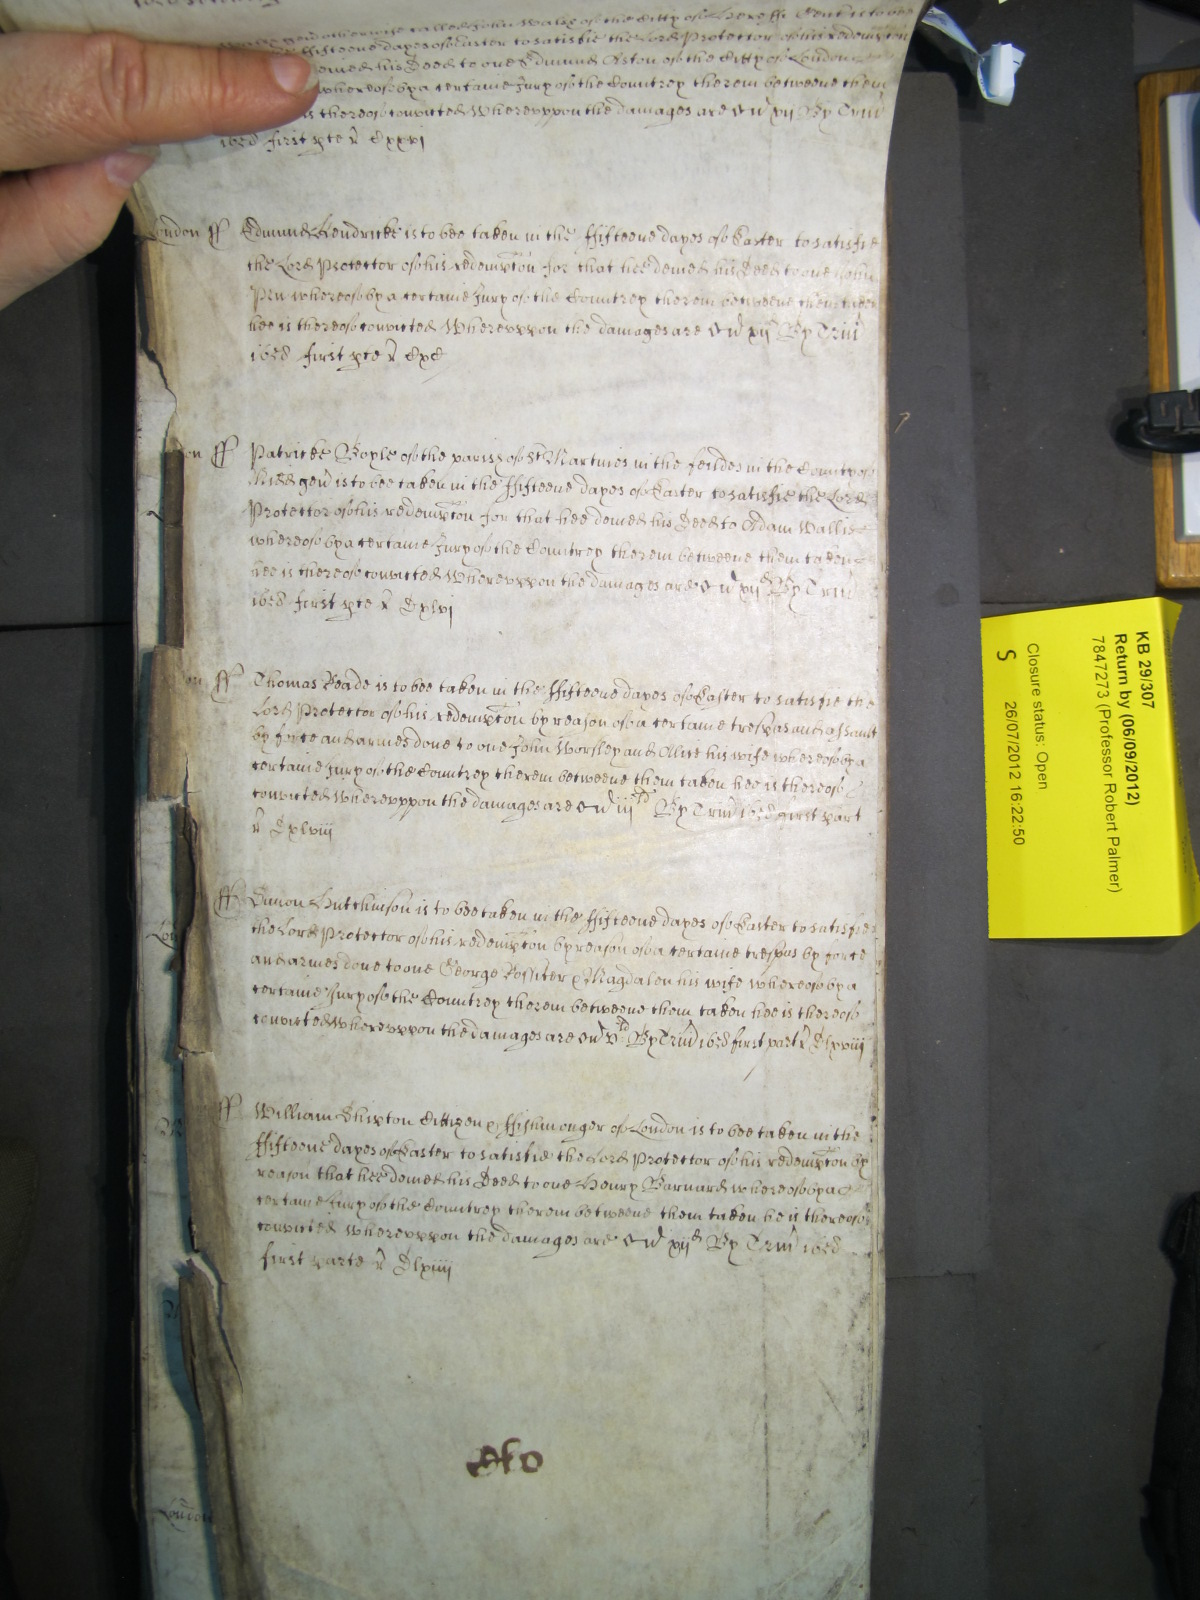 called John Walsh of the Citty of
fifteene dayes of Easter to satisfie the Lord Protector of his redempcon
denied his Deed to one Edmund Aston of the Citty of London
whereof by a certaine Jury of the Countrey therein betweene them
is thereof convicted Whereuppon the damages are xij By Trin
1658 first pte
London ss Edmund Hendricke is to bee taken in the ffifteene dayes of Easter to satisfie
the Lord Protector of his redempcon for that hee denied his Deed to one John
whereof by a certaine Jury of the Countrey therein betweene them taken
hee is thereof convicted Whereuppon the damages are xij By Trin
1658 first pte
don ss Patricke Boyle of the parish of St Martines in the feildes in the County of
Midd gen is to bee taken in the ffifteene dayes of Easter to satisfie the Lord
Protector of his redempcon for that hee denied his Deed to Adam Wallis
whereof by a certaine Jury of the Countrey therein betweene them taken
hee is thereof convicted Whereuppon the damages are xijd By Trin
1658 first pte
on ss Thomas Reade is to bee taken in the ffifteene dayes of Easter to satisfie the
Lord Protector of his redempcon by reason of a certaine trespas and assault
by force and armes done to one John Worsley and Alice his wife whereof by a
certaine Jury of the Countrey therein betweene them taken hee is thereof
convicted Whereuppon the damages are By Trin 1658 first part
ss Simon Hutchinson is to bee taken in the ffifteene dayes of Easter to satisfie
the Lord Protector of his redempcon by reason of a certaine trespas by force
and armes done to one George Rossiter & Magdalen his wife whereof by a
certaine Jury of the Countrey therein betweene them taken hee is thereof
convicted Whereuppon the damages are By Trin 1658 first part
ss William Shipton Cittizen & ffishmonger of London is to bee taken in the
ffifteene dayes of Easter to satisfie the Lord Protector of his redempcon by
reason that hee denied his Deed to one Henry Barnard whereof by a
certaine Jury of the Countrey therein betweene them taken he is thereof
convicted Whereuppon the damages are xijd By Trin 1658
first parte
London
KB 29/307
Return by (06/09/2012)
7847273 (Professor Robert Palmer)
Closure status: Open
S 26/07/2012 16:22:50